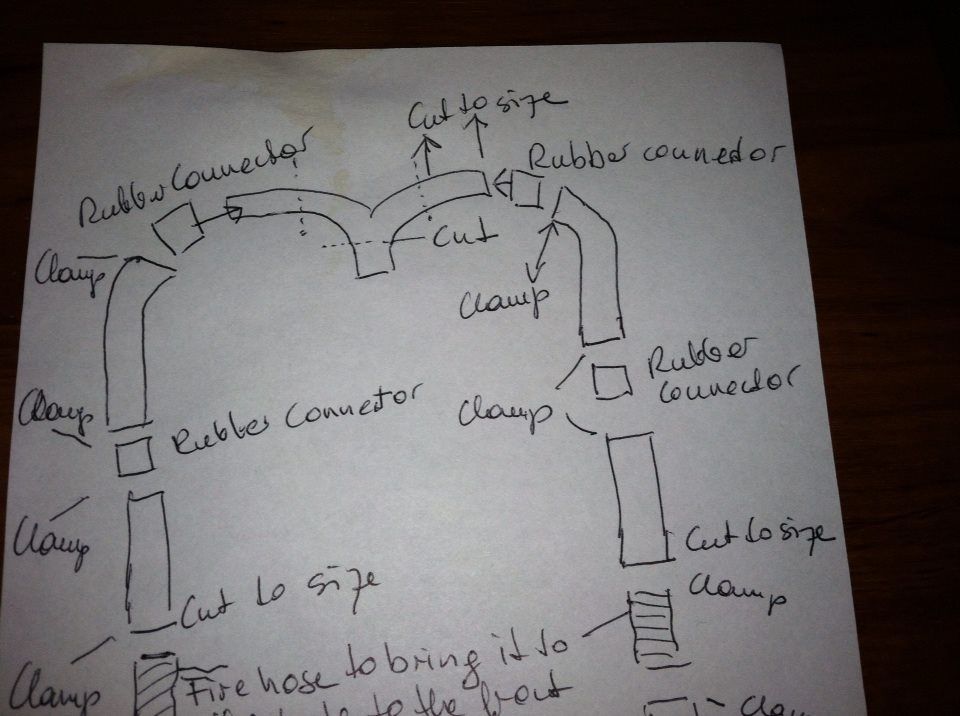 Cut to size
Rubber Connector
Rubber connector
Cut
Clamp
Clamp
Rubber
connector
Clamp
Rubber Connector
Clamp
Clamp
Cut to size
Clamp
Cut to size
Clamp
Fire hose to bring it to
to the front
Clamp